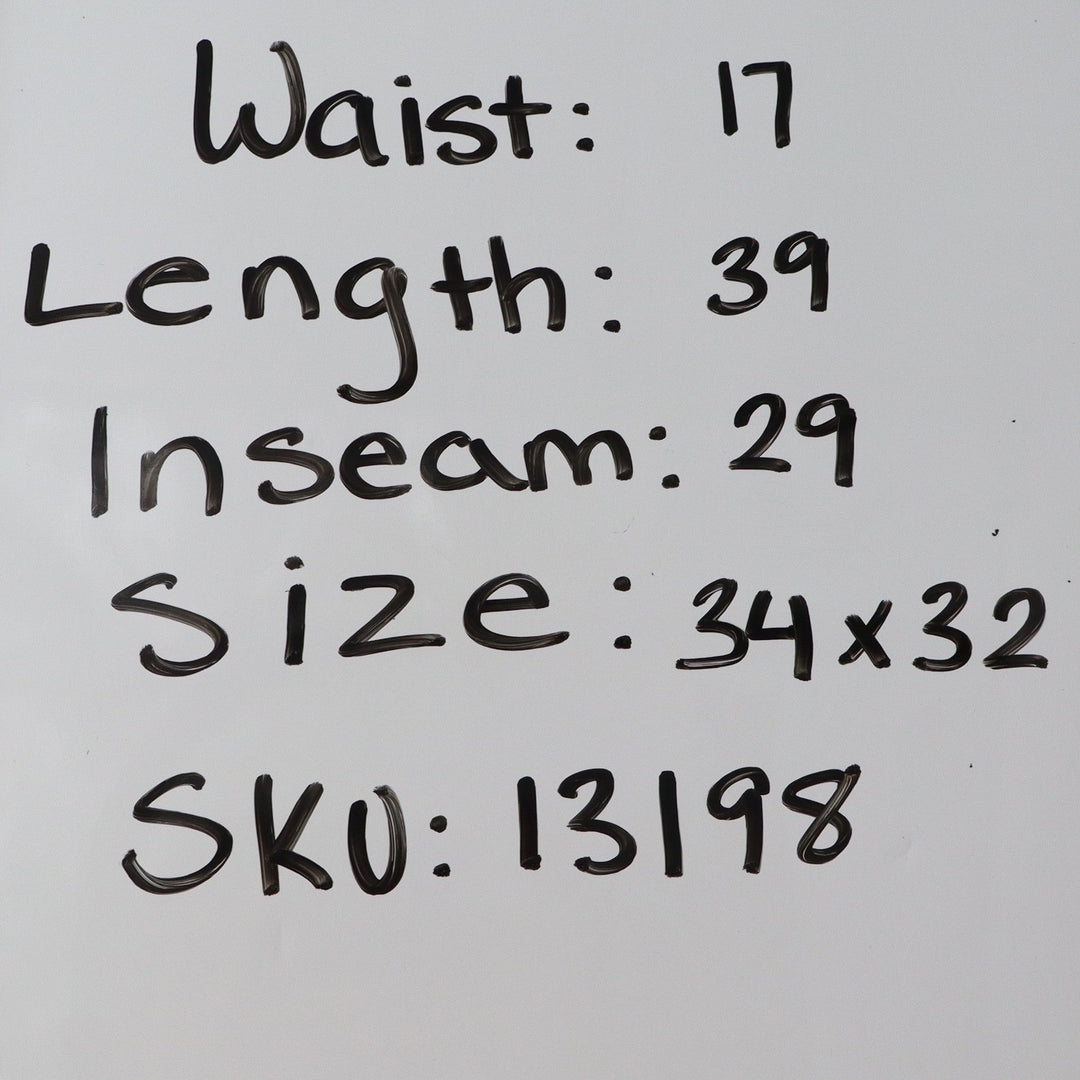 Waist: 17
Length: 39
Inseam: 29
Size: 34x32
SKU: 13198